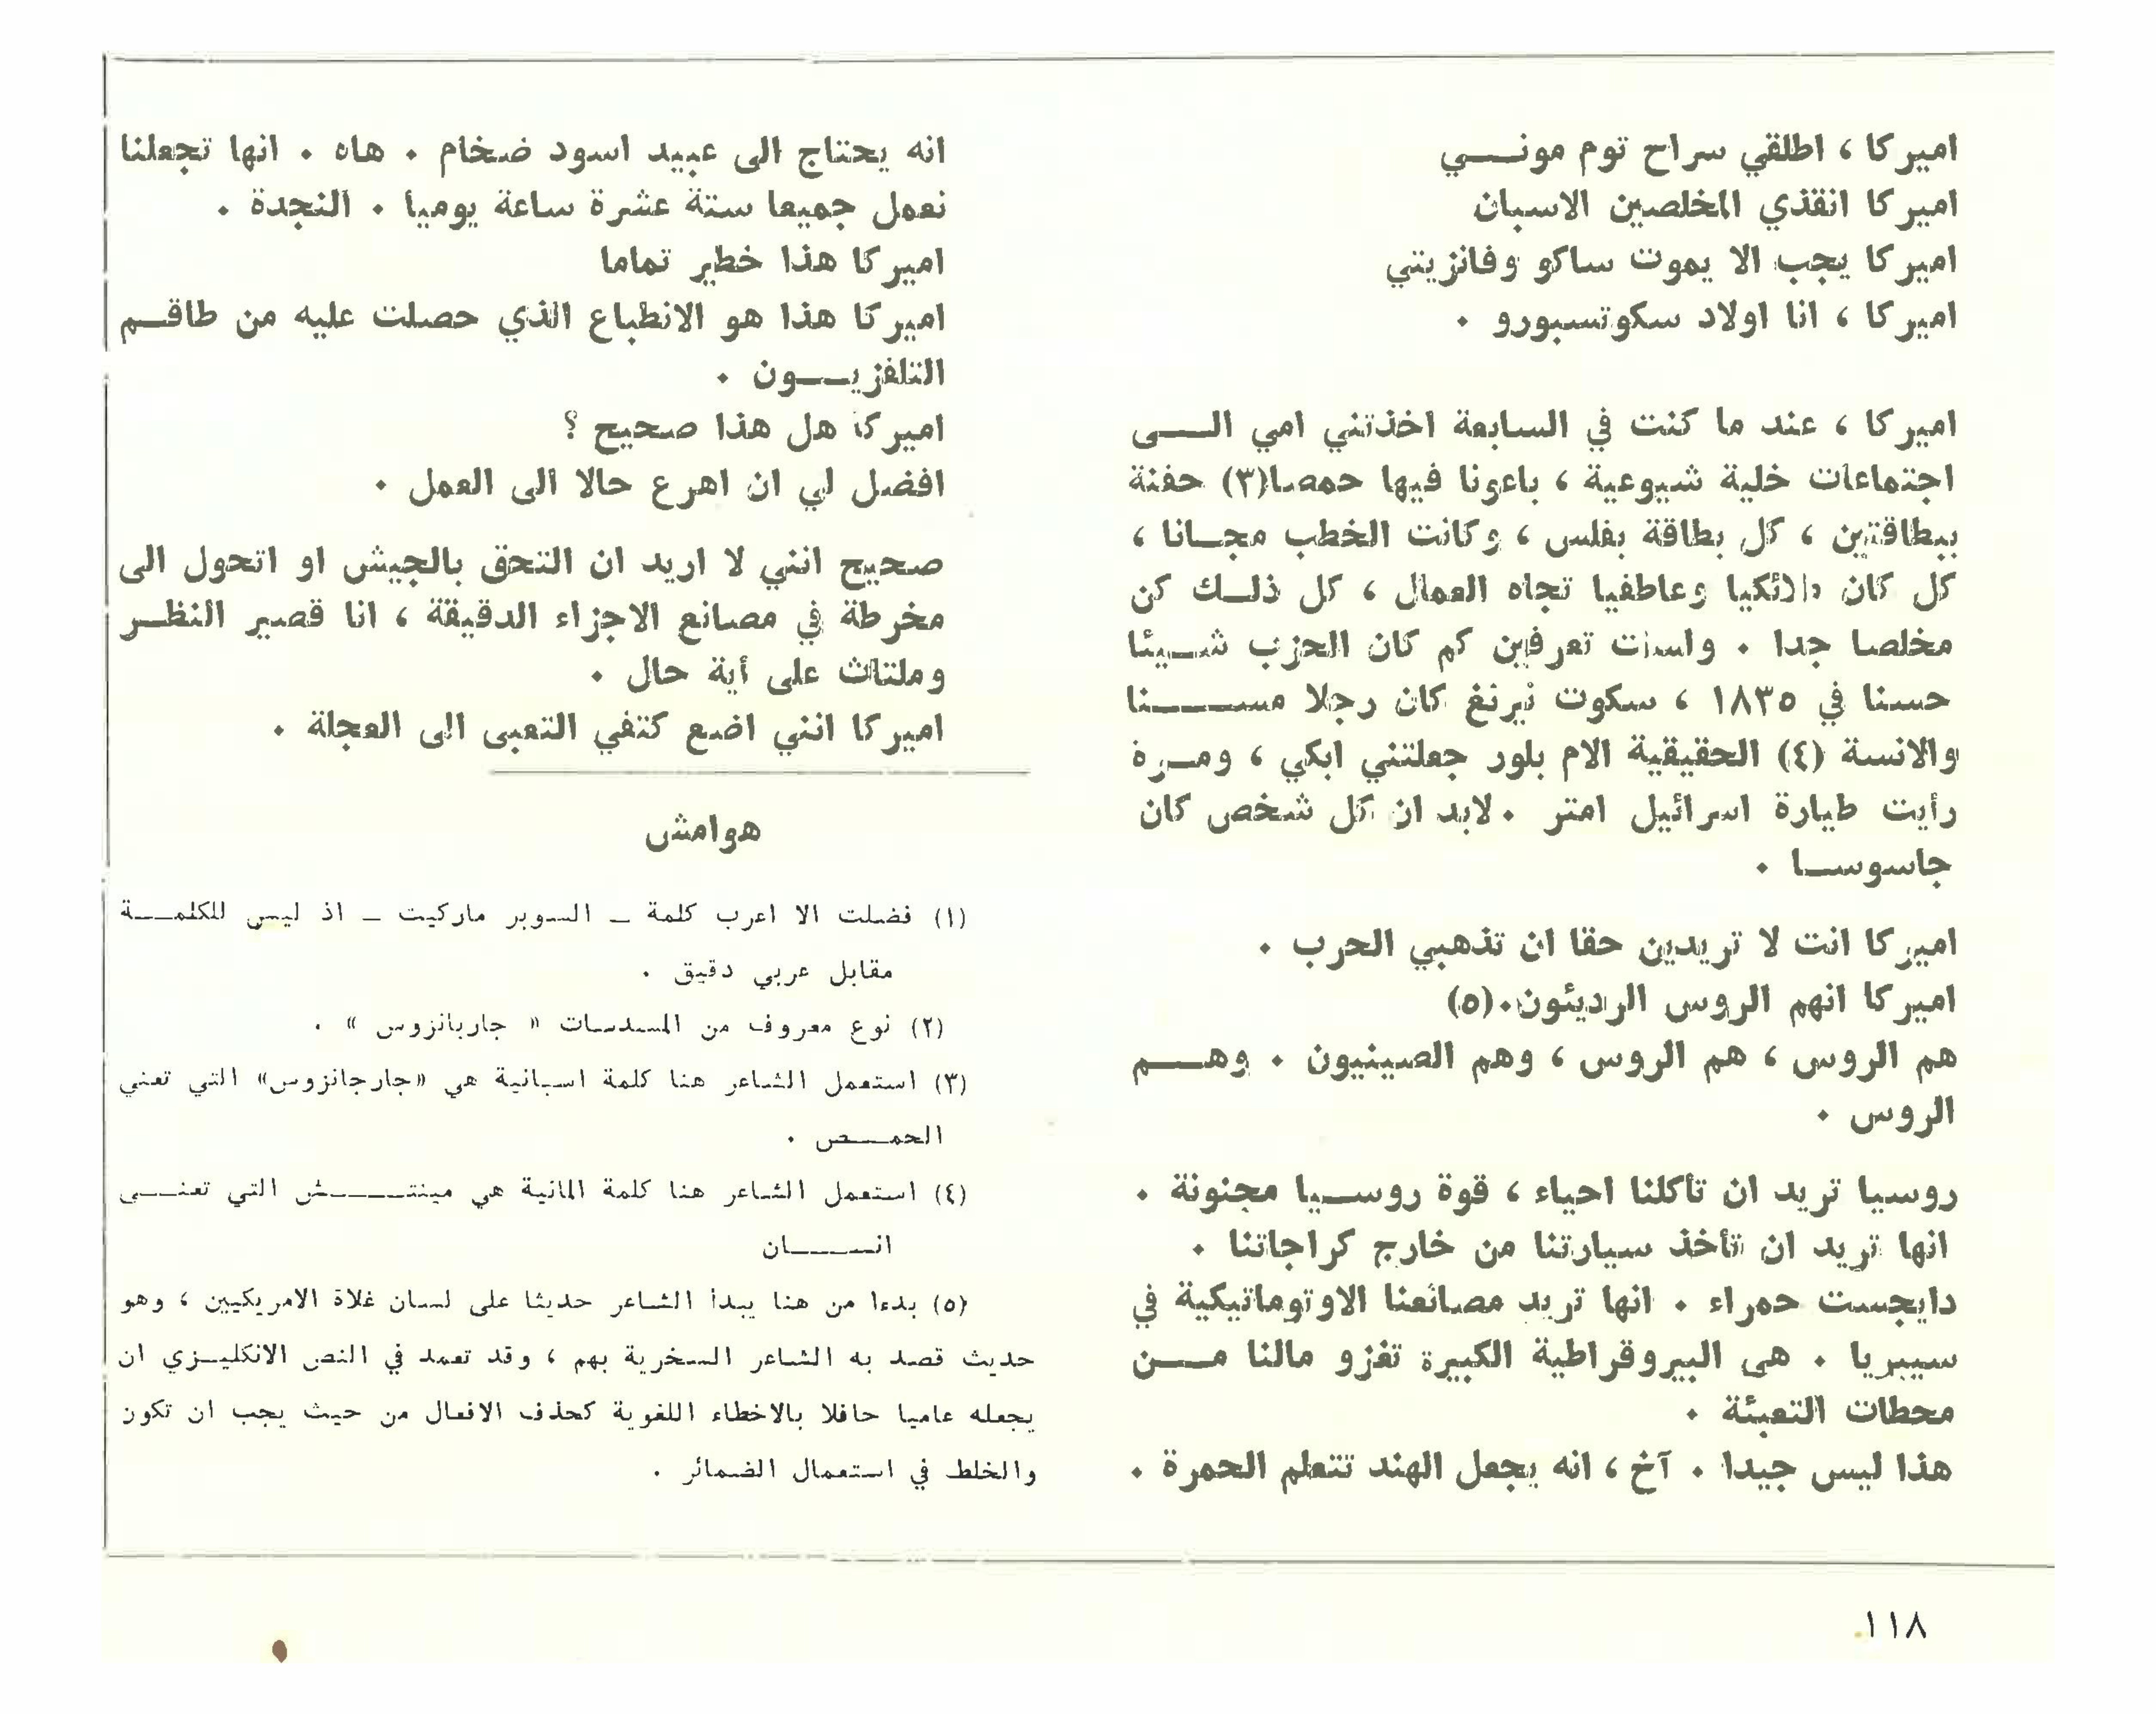 اميركا ، اطلقي سراح توم موني
اميركا انقذي المخلصين الاسبان
اميركا يجب الا يموت ساكو وفانزيتي
اميركا ، انا اولاد سكوتسبورو .
اميركا ، عند ما كنت في السابعة اخذتني امي الى
اجتماعات خلية شيوعية ، باعونا فيها حمصا(٣) حفنة
ببطاقتين ، كل بطاقة بفلس ، وكانت الخطب مجانا ،
كل كان ملائكيا وعاطفيا تجاه العمال ، كل ذلك كن
مخلصا جدا . ولست تعرفين كم كان الحزب شيئا
حسنا في ١٨٣٥ ، سكوت نيرنغ كان رجلا مسنا
والانسة (٤) الحقيقية الام بلور جعلتني ابكي ، ومرة
رأيت طيارة اسرائيل امتر . لابد ان كل شخص كان
جاسوسا .
اميركا انت لا تريدين حقا ان تذهبي الحرب .
اميركا انهم الروس الرديئون.(٥)
هم الروس ، هم الروس ، وهم الصينيون . وهم
الروس .
روسيا تريد ان تأكلنا احياء ، قوة روسيا مجنونة .
انها تريد ان تأخذ سيارتنا من خارج كراجاتنا .
دايجست حمراء . انها تريد مصانعنا الاوتوماتيكية في
سيبريا . هى البيروقراطية الكبيرة تغزو مالنا من
محطات التعبئة .
هذا ليس جيدا . آخ ، انه يجعل الهند تتعلم الحمرة .
انه يحتاج الى عبيد اسود ضخام . هاه . انها تجعلنا
نعمل جميعا ستة عشرة ساعة يوميا . النجدة .
اميركا هذا خطير تماما
اميركا هذا هو الانطباع الذي حصلت عليه من طاقم
التلفزيون .
اميركا هل هذا صحيح ؟
افضل لي ان اهرع حالا الى العمل .
صحيح انني لا اريد ان التحق بالجيش او اتحول الى
مخرطة في مصانع الاجزاء الدقيقة ، انا قصير النظر
وملتاث على أية حال .
اميركا انني اضع كتفي التعبى الى العجلة .
هوامش
(١) فضلت الا اعرب كلمة ــ السوبر ماركيت ــ اذ ليس للكلمة
مقابل عربي دقيق .
(٢) نوع معروف من المسدسات « جاربانزوس » .
(٣) استعمل الشاعر هنا كلمة اسبانية هي «جارجانزوس» التي تعني
الحمص .
(٤) استعمل الشاعر هنا كلمة المانية هي مينتش التي تعنى
انسان
(٥) بدءا من هنا يبدأ الشاعر حديثا على لسان غلاة الامريكيين ، وهو
حديث قصد به الشاعر السخرية بهم ، وقد تعمد في النص الانكليزي ان
يجعله عاميا حافلا بالاخطاء اللغوية كحذف الافعال من حيث يجب ان تكون
والخلط في استعمال الضمائر .
١١٨